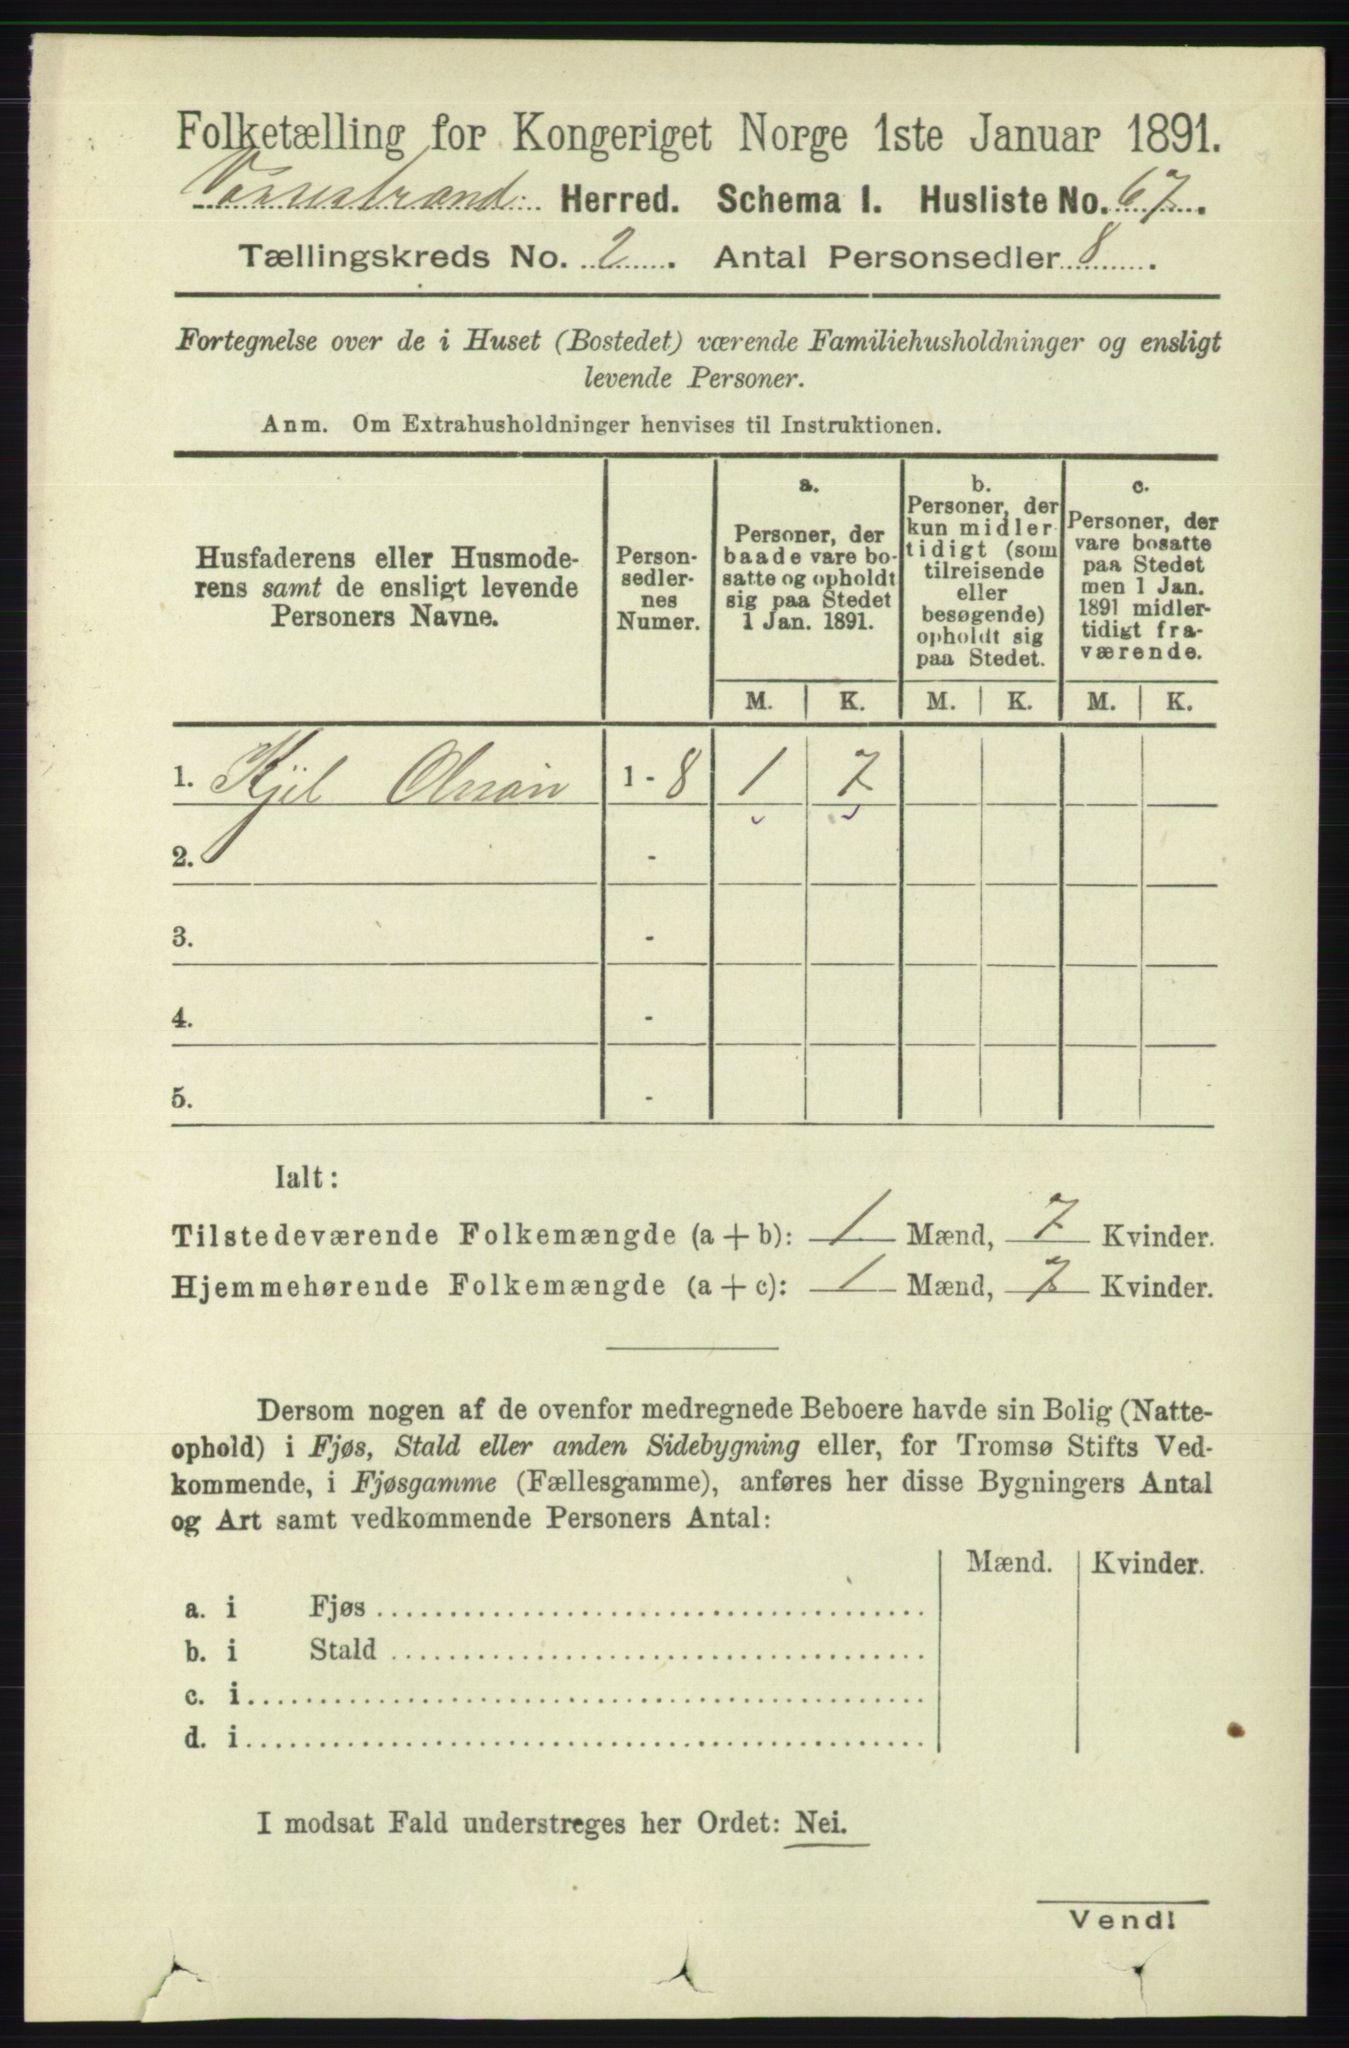 Folketælling for Kongeriget Norge 1ste Januar 1891.
Vossestrand Herred. Schema I. Husliste No. 67.
Tællingskreds No. 2. Antal Personsedler 8.
Fortegnelse over de i Huset (Bostedet) værende Familiehusholdninger og ensligt
levende Personer.
Anm. Om Extrahusholdninger henvises til Instruktionen.
Husfaderens eller Husmode-
rens samt de ensligt levende
Personers Navne.
Person-
sedler-
nes
Numer.
a.
Personer, der
baade vare bo-
satte og opholdt
sig paa Stedet
1 Jan. 1891.
b.
Personer, der
kun midler-
tidigt (som
tilreisende
eller
besøgende)
opholdt sig
paa Stedet.
c.
Personer, der
vare bosatte
paa Stedet
men 1 Jan.
1891 midler-
tidigt fra-
værende.
M. K. M. K. M. K.
1. Kjel 1 - 8 1 7
2. -
3. -
4. -
5. -
Ialt:
Tilstedeværende Folkemængde (a + b): 1 Mænd, 7 Kvinder.
Hjemmehørende Folkemængde (a + c): 1 Mænd, 7 Kvinder.
Dersom nogen af de ovenfor medregnede Beboere havde sin Bolig (Natte-
ophold) i Fjøs, Stald eller anden Sidebygning eller, for Tromsø Stifts Ved-
kommende, i Fjøsgamme (Fællesgamme), anføres her disse Bygningers Antal
og Art samt vedkommende Personers Antal:
Mænd. Kvinder.
a. i Fjøs
b. i Stald
c. i
d. i
I modsat Fald understreges her Ordet: Nei.
Vend!